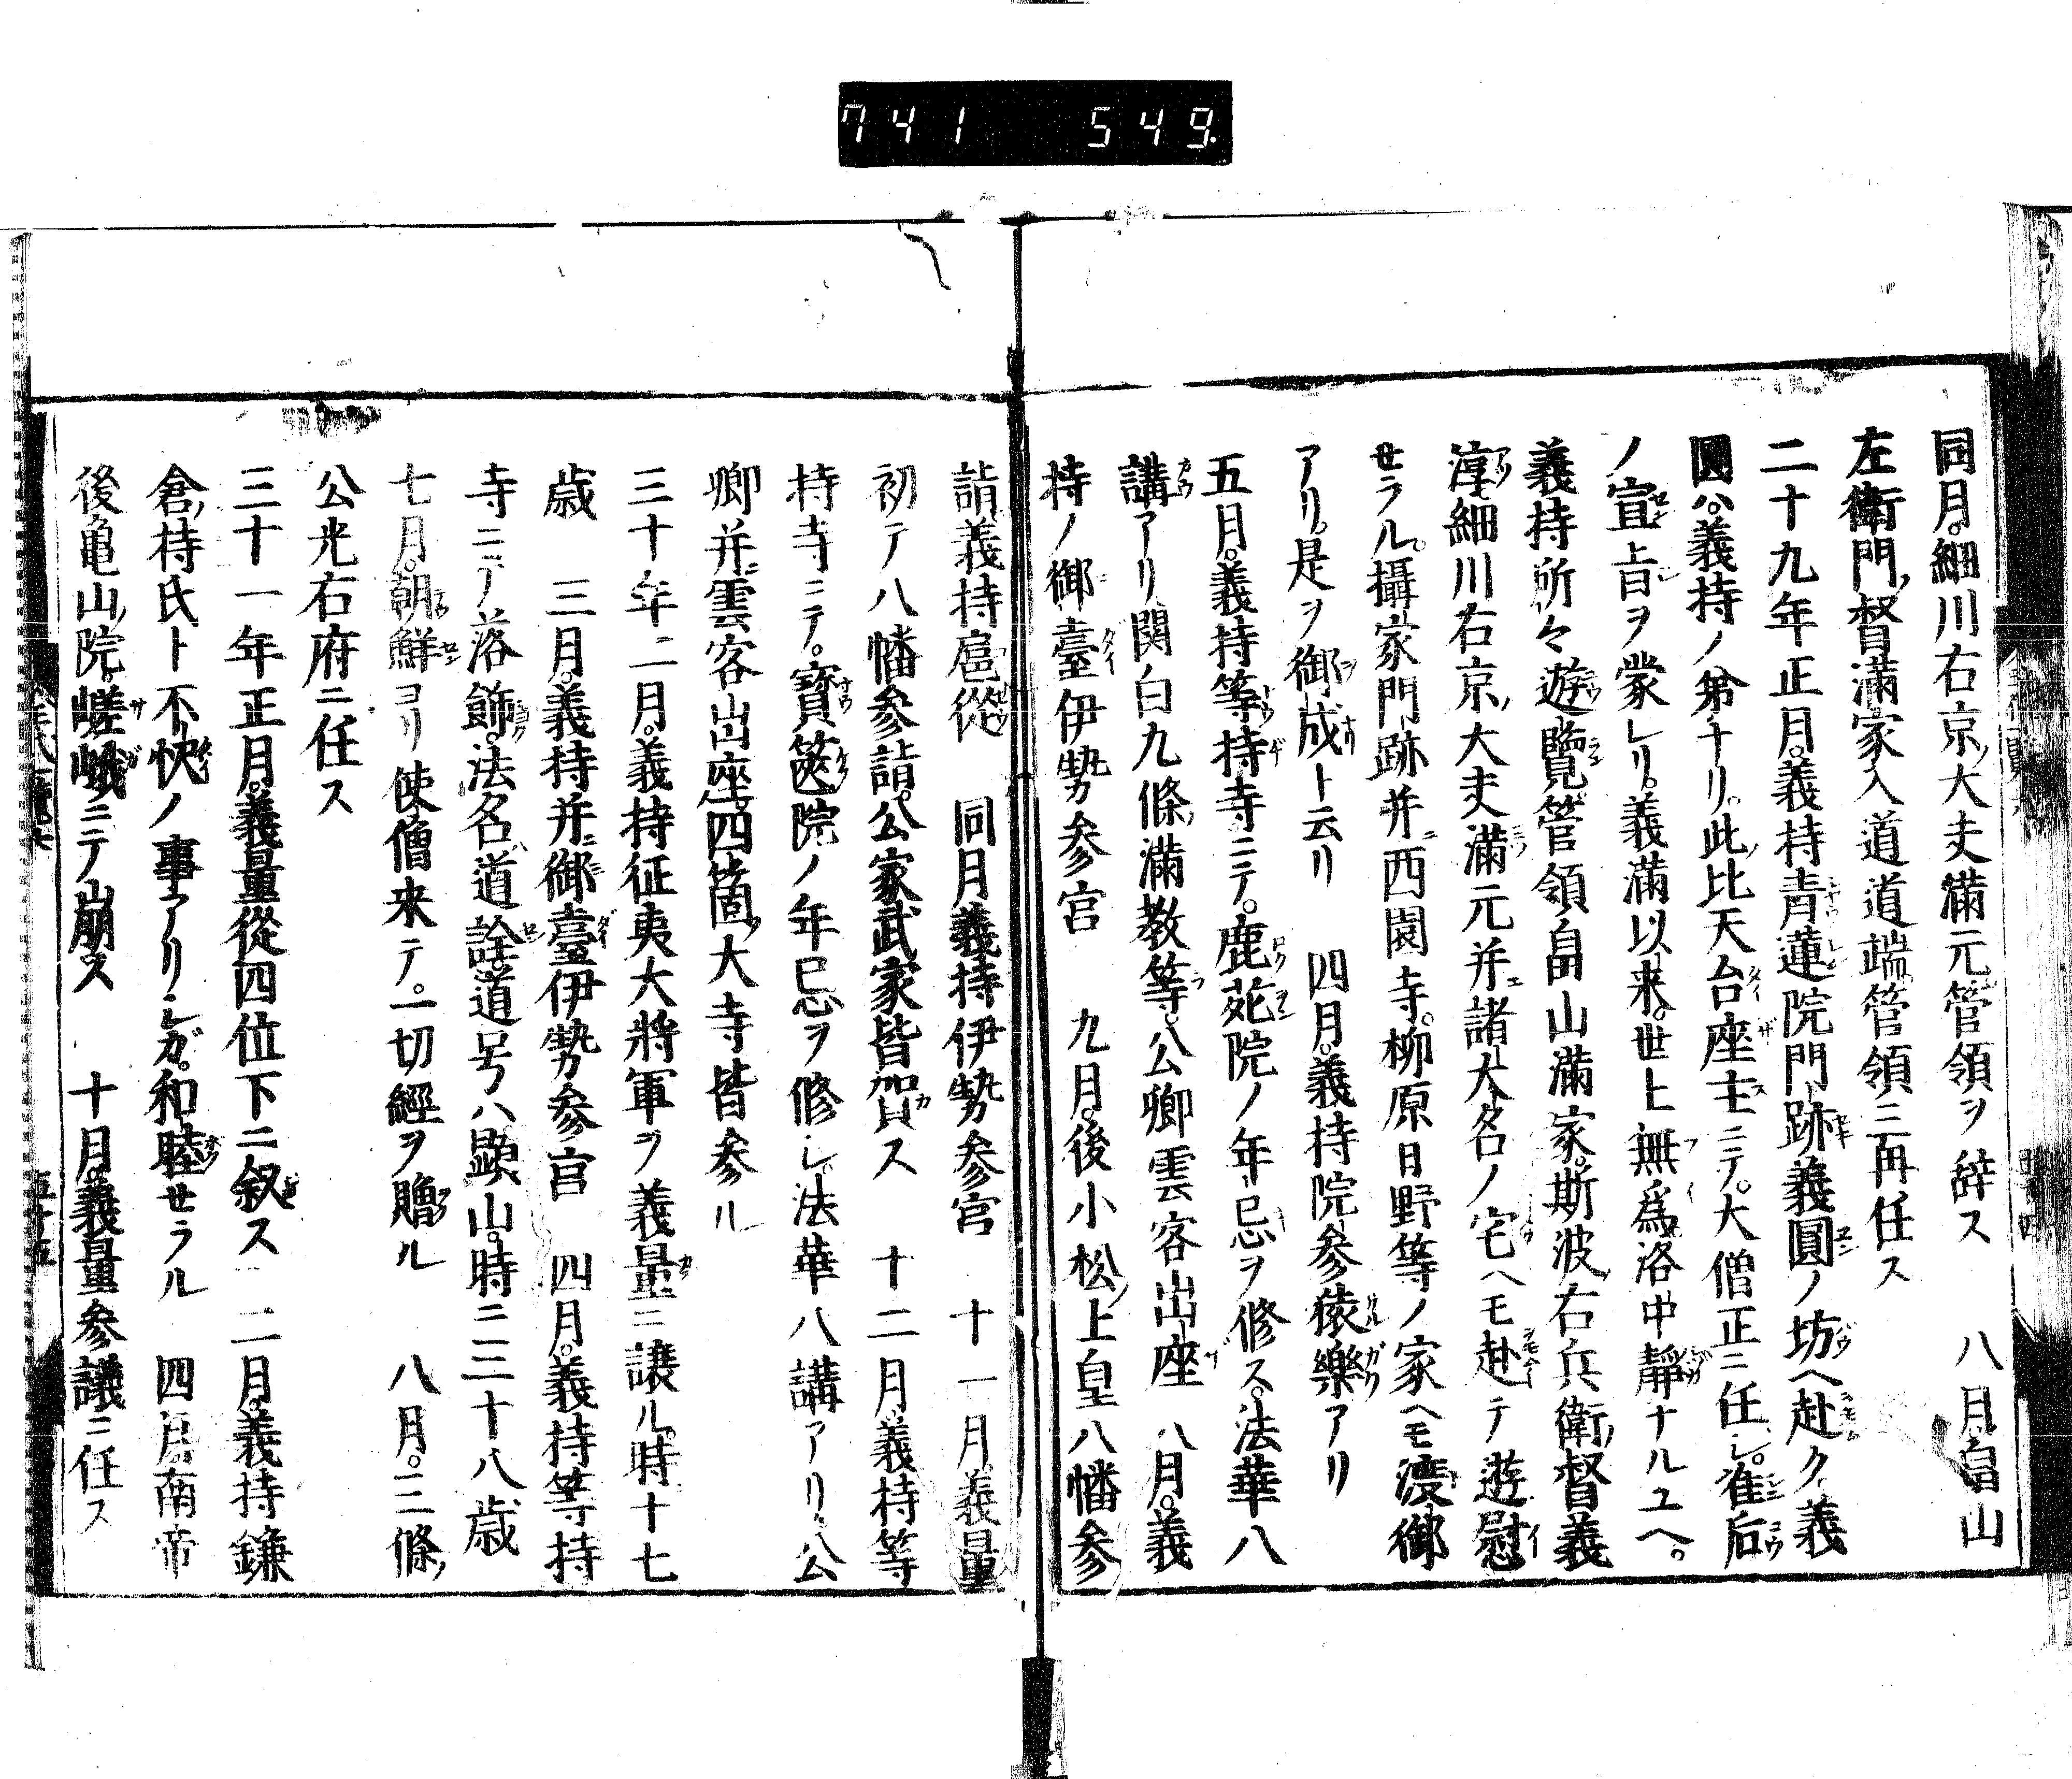 741 549.
同月。細川右京ノ大夫満元管領ヲ辞ス　八月。畠山
左衛門ノ督満家入道道端管領ニ再任ス
二十九年正月。義持青蓮院門跡義圓ノ坊ヘ赴ク。義
圓ハ。義持ノ弟ナリ。此比天台座主ニテ。大僧正ニ任シ。准后
ノ宣旨ヲ蒙レリ。義満以来。世上無為洛中靜ナルユヘ。
義持所々遊覽。管領畠山満家。斯波右兵衛ノ督義
淳。細川右京ノ大夫満元并諸大名ノ宅ヘモ赴テ遊慰
セラル。攝家門跡并西園寺。柳原日野等ノ家ヘモ渡御
アリ。是ヲ御成ト云リ　四月。義持院参猿樂アリ
五月。義持等持寺ニテ。鹿苑院ノ年忌ヲ修ス。法華八
講アリ。関白九條満教等。公卿雲客出座　八月。義
持ノ御臺伊勢参宮　九月。後小松ノ上皇八幡参
詣義持扈從　同月義持伊勢参宮　十一月。義量
初テ八幡参詣。公家武家皆賀ス　十二月。義持等
持寺ニテ。寳篋院ノ年忌ヲ修シ。法華八講アリ。公
卿并雲客出座。四箇ノ大寺皆参ル
三十年二月。義持征夷大將軍ヲ義量ニ譲ル。時十七
歳　三月。義持并御臺伊勢参宮　四月。義持等持
寺ニテ落飾。法名道詮。道号ハ顕山。時ニ三十八歳
七月。朝鮮ヨリ使僧来テ。一切經ヲ贈ル　八月。三條ノ
公光右府ニ任ス
三十一年正月。義量從四位下ニ叙ス　二月。義持鎌
倉ノ持氏ト不快ノ事アリシガ。和睦セラル　四月。南帝
後亀山ノ院。嵯峨ニテ崩ス　十月。義量参議ニ任ス